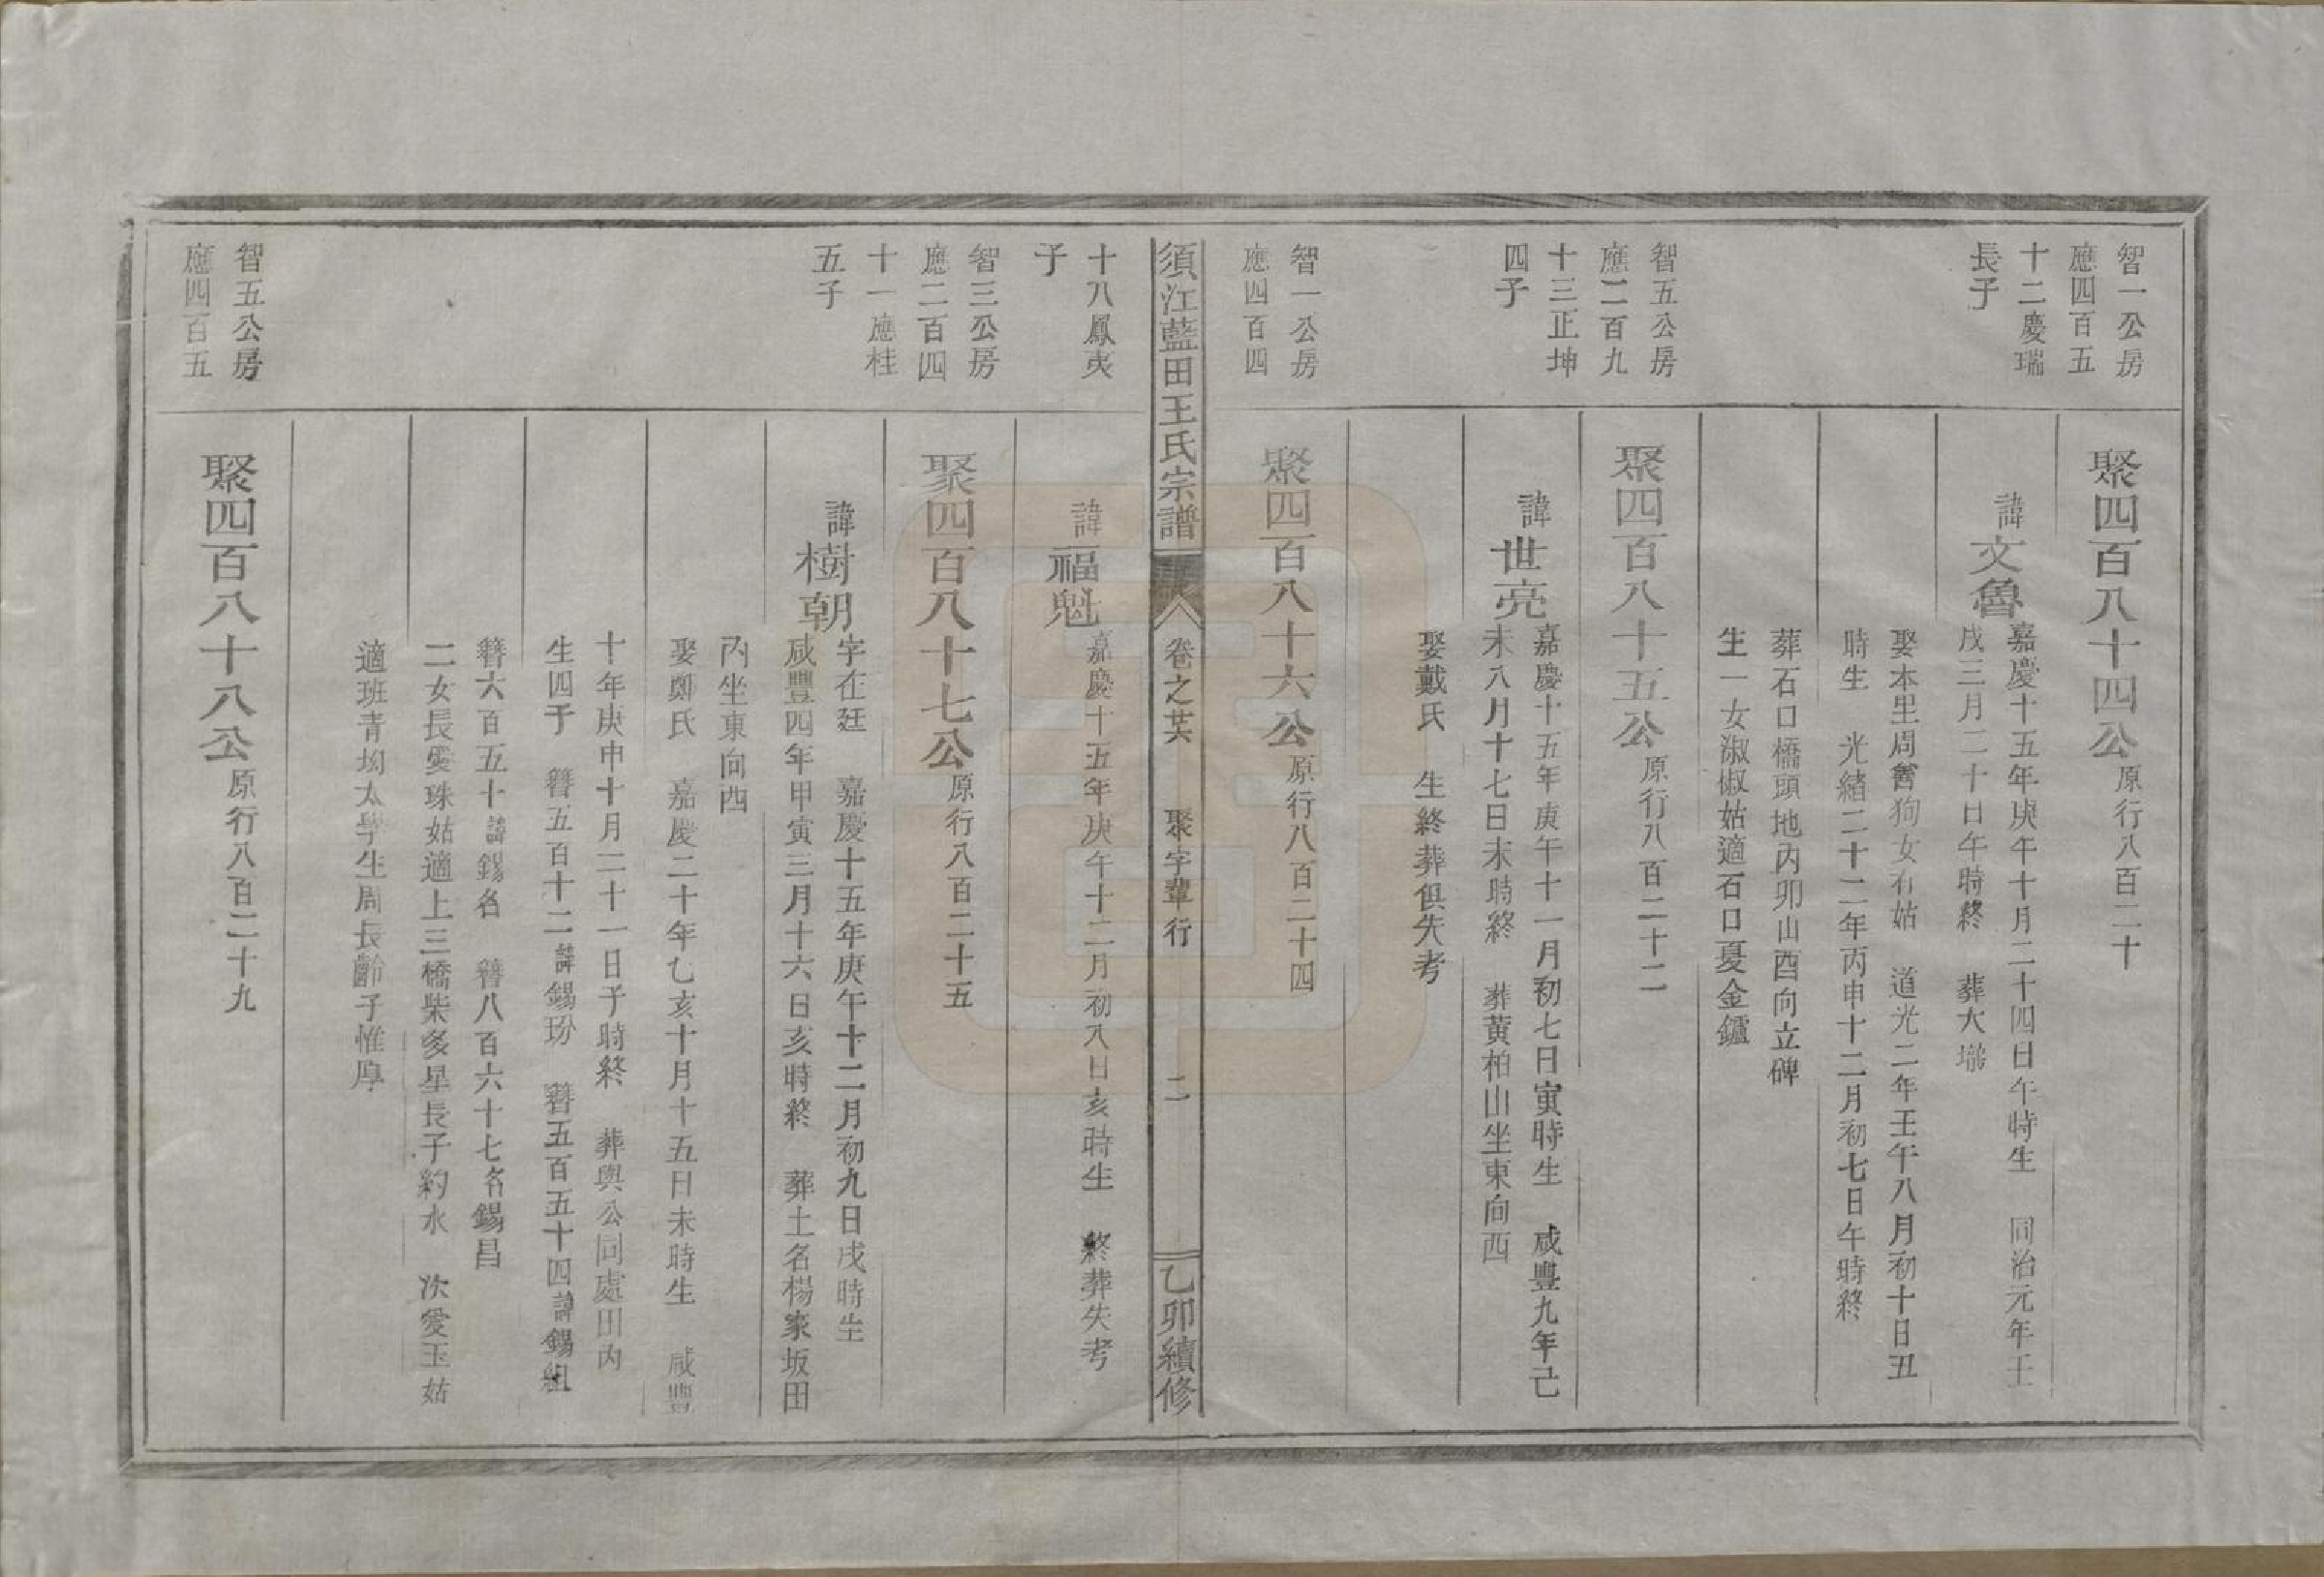 智一公房
應四百五
十二慶瑞
長子
聚四百八十四公原行八百二十
諱文魯
嘉慶十五年庚午十月二十四日午時生　同治元年壬
戌三月二十日午時終　葬大塝
娶本里周曾狗女石姑　道光二年壬午八月初十日丑
時生　光緒二十二年丙申十二月初七日午時終
葬石口橋頭地內卯山酉向立碑
生一女淑俶姑適石口夏金鑪
智五公房
應二百九
十三正坤
四子
聚四百八十五公原行八百二十二
諱世亮
嘉慶十五年庚午十一月初七日寅時生　咸豐九年己
未八月十七日未時終　葬黄柏山坐東向西
娶戴氏　生終葬俱失考
智一公房
應四百四
聚四百八十六公原行八百二十四
須江藍田王氏宗譜
卷之共　聚字輩行
二
乙卯續修
十八鳳夷
子
諱福魁
嘉慶十五年庚午十二月初八日亥時生　終葬失考
智三公房
應二百四
十一應桂
五子
聚四百八十七公原行八百二十五
諱樹朝
字在廷　嘉慶十五年庚午十二月初九日戌時生
咸豐四年甲寅三月十六日亥時終　葬土名楊家坂田
內坐東向西
娶鄭氏　嘉慶二十年乙亥十月十五日未時生　咸豐
十年庚申十月二十一日子時終　葬與公同處田內
生四子　簪五百十二諱錫玢　簪五百五十四諱錫組
簪六百五十諱錫名　簪八百六十七名錫昌
二女長愛珠姑適上三橋柴多星長子約水　次愛玉姑
適班青坳太學生周長齡子惟厚
智五公房
應四百五
聚四百八十八公原行八百二十九